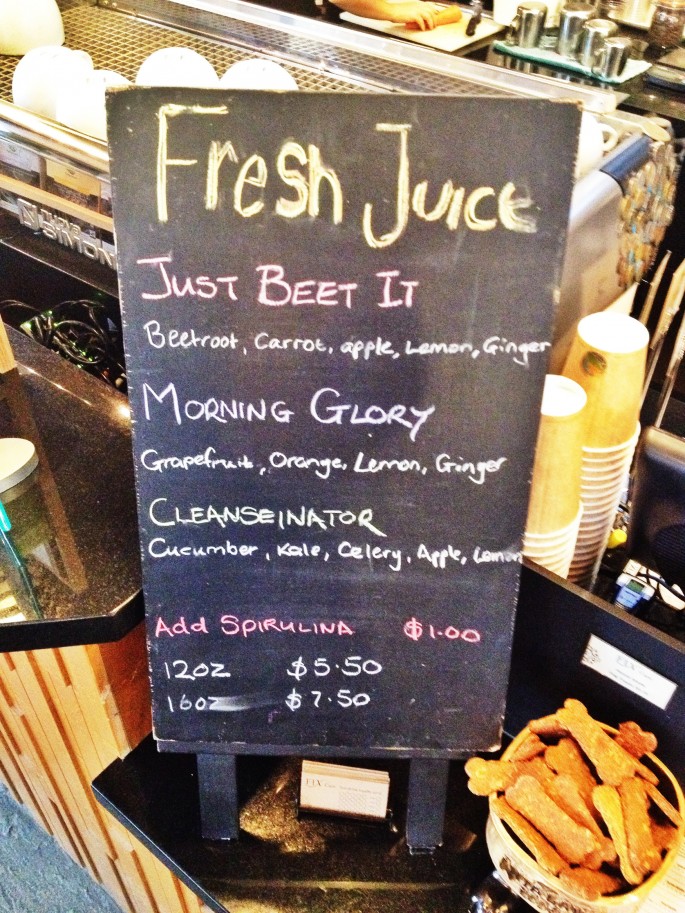 Fresh Juice
JUST BEET IT
Beetroot, Carrot, apple, Lemon, Ginger
MORNING GLORY
Grapefruit, Orange, Lemon, Ginger
CLEANSEINATOR
Cucumber, Kale, Celery, Apple, Lemon
Add SPIRULINA $1.00
12oz $5.50
16oz $7.50
SIMON
FIX
FIX